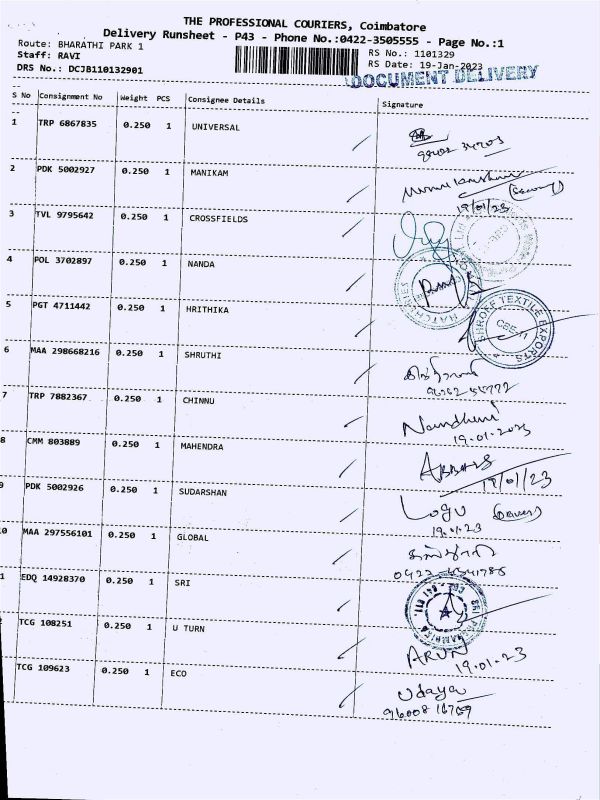 THE PROFESSIONAL COURIERS, Coimbatore
Delivery Runsheet - P43 - Phone No.:0422-3505555 - Page No.:1
Route: BHARATHI PARK 1
Staff: RAVI
DRS No.: DCJB110132901
RS No.: 1101329
RS Date: 19-Jan-2023
DOCUMENT DELIVERY
S No Consignment No Weight PCS Consignee Details Signature
1 TRP 6867835 0.250 1 UNIVERSAL
2 PDK 5002927 0.250 1 MANIKAM
19/01/23
3 TVL 9795642 0.250 1 CROSSFIELDS
4 POL 3702897 0.250 1 NANDA
5 PGT 4711442 0.250 1 HRITHIKA
SHROFF TEXTILE EXPORTS
CBE-11
6 MAA 298668216 0.250 1 SHRUTHI
7 TRP 7882367 0.250 1 CHINNU Nandhini
19.01.2023
8 CMM 803889 0.250 1 MAHENDRA ABBAS
19/01/23
9 PDK 5002926 0.250 1 SUDARSHAN Logu
19.1.23
0 MAA 297556101 0.250 1 GLOBAL
1 EDQ 14928370 0.250 1 SRI
TCG 108251 0.250 1 U TURN ARUN
19.01.23
TCG 109623 0.250 1 ECO Udaya